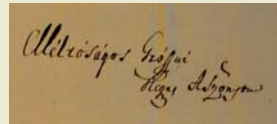 Méltóságos Grófné
Kegyes Aszonyom